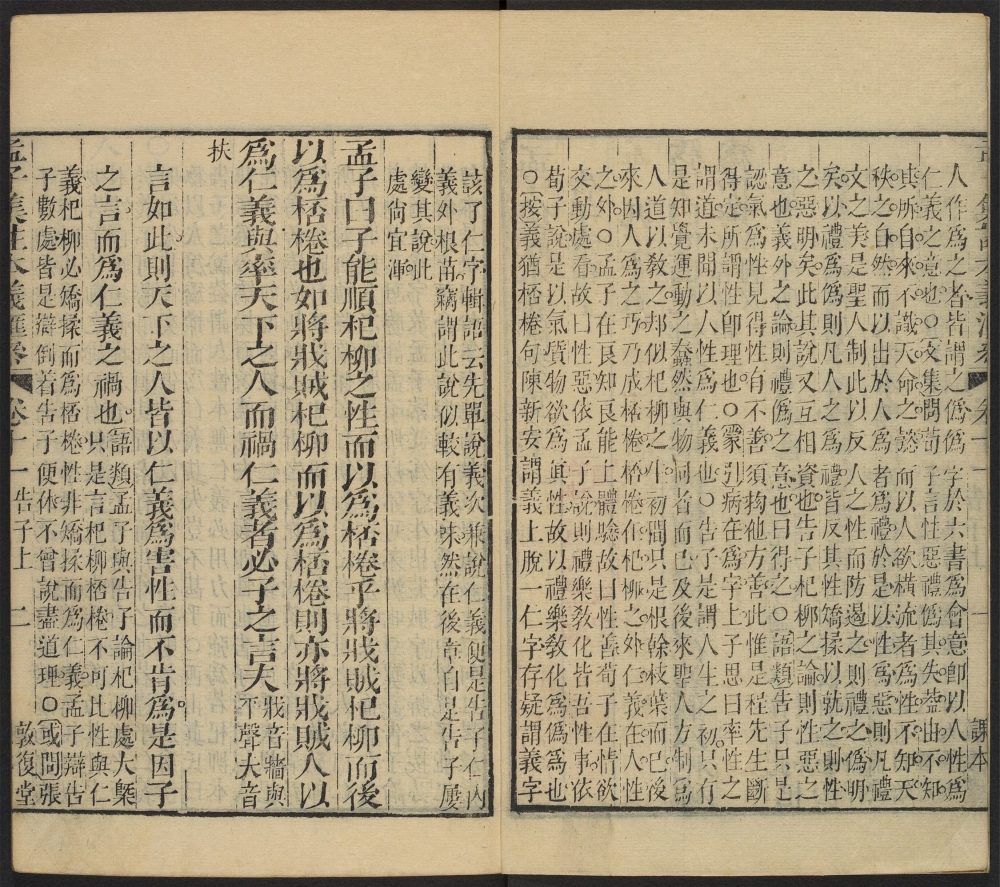 人作爲之者皆謂之僞僞字於六書爲會意卽以人性爲
仁義之意也○文集問荀子言性惡禮爲其失葢由不知
其所自來不識天命之懿而以人欲橫流者爲性不知天
秩之自然而以出於人爲者爲禮於是以性爲惡則凡禮
文之美是聖人制此以反人之性而防遏之則禮之僞明
矣以禮爲僞則凡人之爲禮皆反其性矯揉以就之則性
之惡明矣此其說又互相資也告子杞柳之論則性惡之
意也義外之論則禮僞之意也曰得之○語類告子只是
認氣爲性見得性有不善須拘他方善此惟是程先生斷
得定所謂性卽理也○蒙引病在爲字上子思曰率性之
謂道未聞以人性爲仁義也○告子是謂人生之初只有
是知覺運動之蠢然與物同者而已及後來聖人方制爲
人道以教之却似杞柳之生初間只是根榦枝葉而已後
來因人爲之巧乃成桮棬桮棬在杞柳之外仁義在人性
之外○孟子在良知良能上體驗故曰性善荀子在情欲
交動處看故曰性惡依孟子說則禮樂敎化皆吾性事依
荀子說是以氣質物欲爲眞性故以禮樂敎化爲僞也
○按義猶桮棬句陳新安謂義上脫一仁字存疑謂義字
課本
該了仁字輯語云先單說義次兼說仁義便是告子仁內
義外根苗竊謂此說似較有義味然在後章自是告子屢
變其說此
處尙宜渾
孟子曰子能順杞柳之性而以爲桮棬乎將戕賊杞柳而後
以爲桮棬也如將戕賊杞柳而以爲桮棬則亦將戕賊人以
爲仁義與率天下之人而禍仁義者必子之言夫戕音牆與平聲夫音
扶
言如此則天下之人皆以仁義爲害性而不肯爲是因子
之言而爲仁義之禍也語類孟子與告子論杞柳處大槩只是言杞柳桮棬不可比性與仁
義杞柳必矯揉而爲桮棬性非矯揉而爲仁義孟子辯告
子數處皆是辯倒着告子便休不曾說盡道理○或問張
孟子集註本義匯參 卷十一 告子上 二 敦復堂